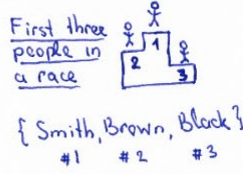 First three
people in
a race
1
2
3
{ Smith, Brown, Black }
#1 #2 #3